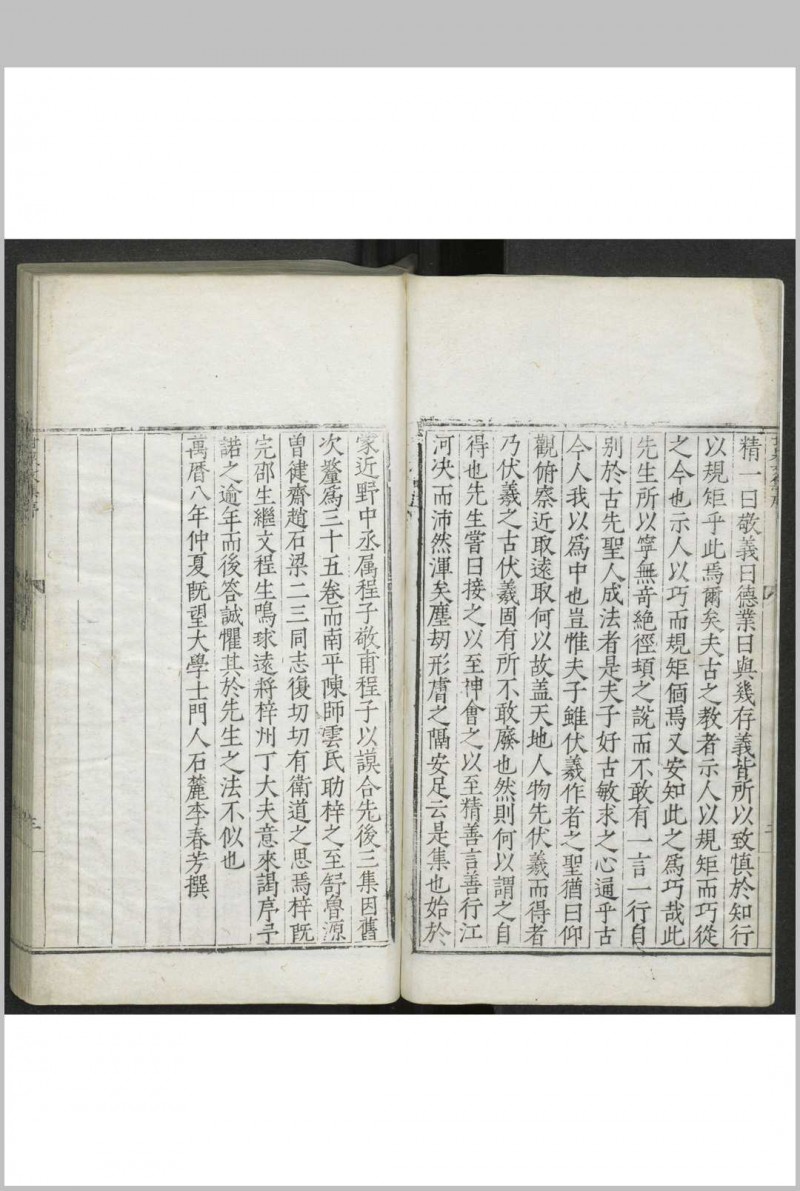 精一曰敬義曰德業曰與幾存義皆所以致慎於知行
以規矩乎此焉爾矣夫古之教者示人以規矩而巧從
之今也示人以巧而規矩偭焉又安知此之爲巧哉此
先生所以寧無奇絶徑頃之說而不敢有一言一行自
别於古先聖人成法者是夫子好古敏求之心通乎古
今人我以爲中也豈惟夫子雖伏羲作者之聖猶曰仰
觀俯察近取遠取何以故盖天地人物先伏羲而得者
乃伏羲之古伏羲固有所不敢廢也然則何以謂之自
得也先生嘗曰接之以至神會之以至精善言善行江
河决而沛然渾矣塵刼形膚之隔安足云是集也始於
家近野中丞属程子敬甫程子以謨合先後三集因舊
次釐爲三十五卷而南平陳師雲氏助梓之至舒魯源
曽健齋趙石梁二三同志復切切有衛道之思焉梓既
完邵生繼文程生鳴球遠將梓州丁大夫意來謁序予
諾之逾年而後答誠懼其於先生之法不似也
萬曆八年仲夏既望大學士門人石麓李春芳撰